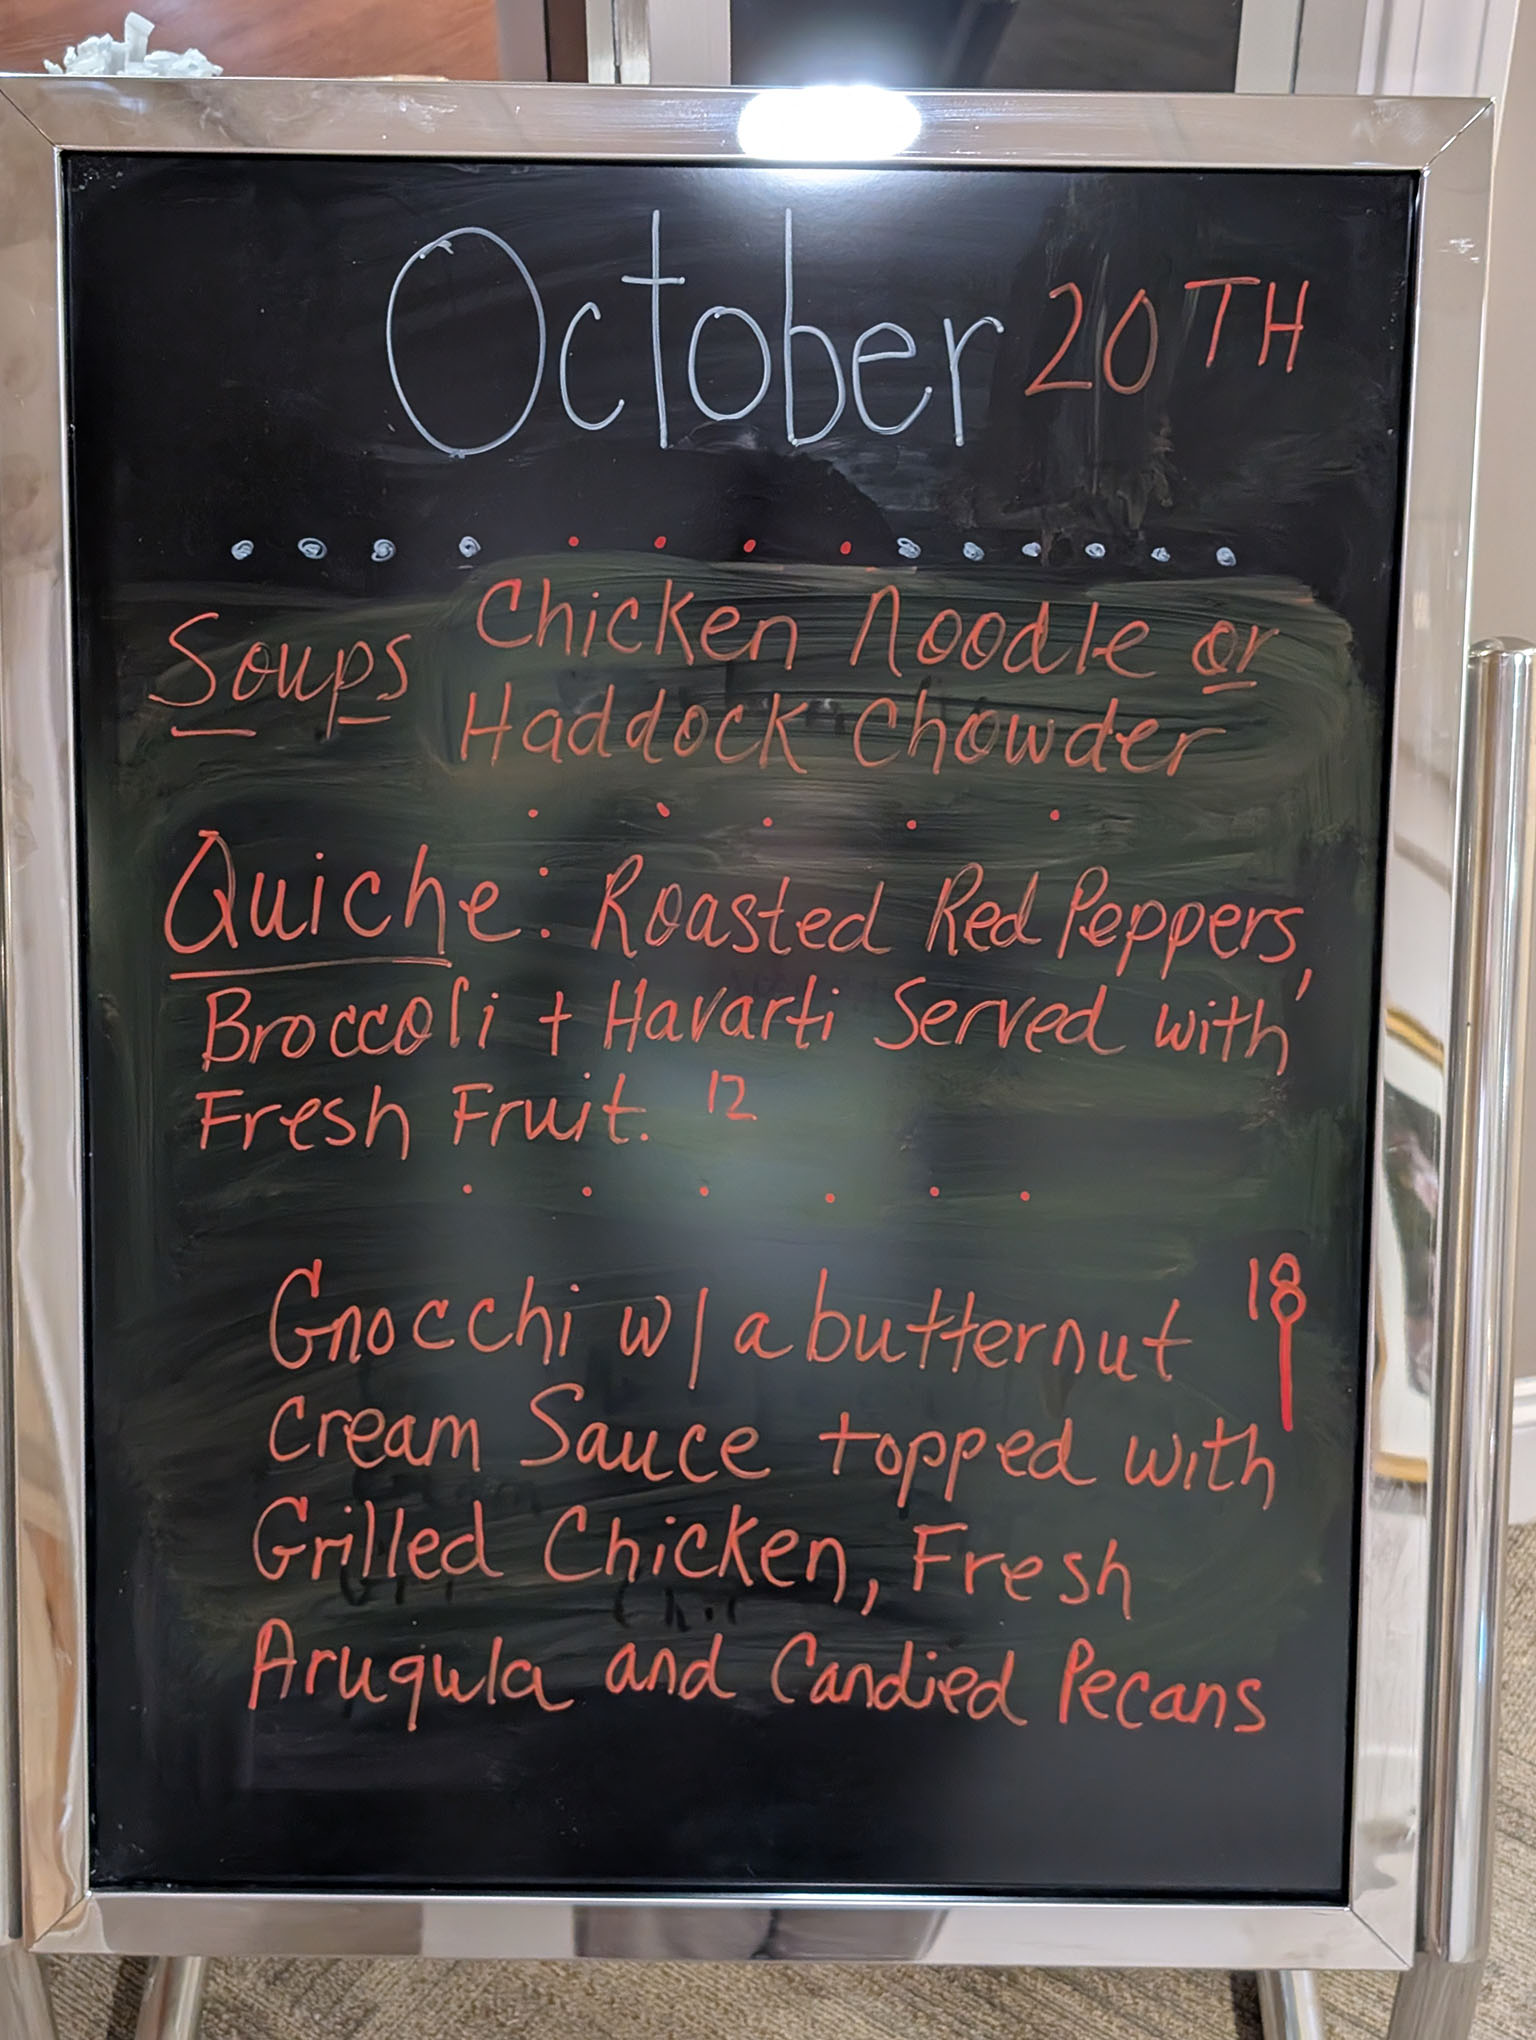 October 20TH
Soups Chicken Noodle or
Haddock Chowder
Quiche: Roasted Red Peppers,
Broccoli + Havarti Served with
Fresh Fruit. 12
Gnocchi w/ a butternut 18
Cream Sauce topped with
Grilled Chicken, Fresh
Arugula and Candied Pecans